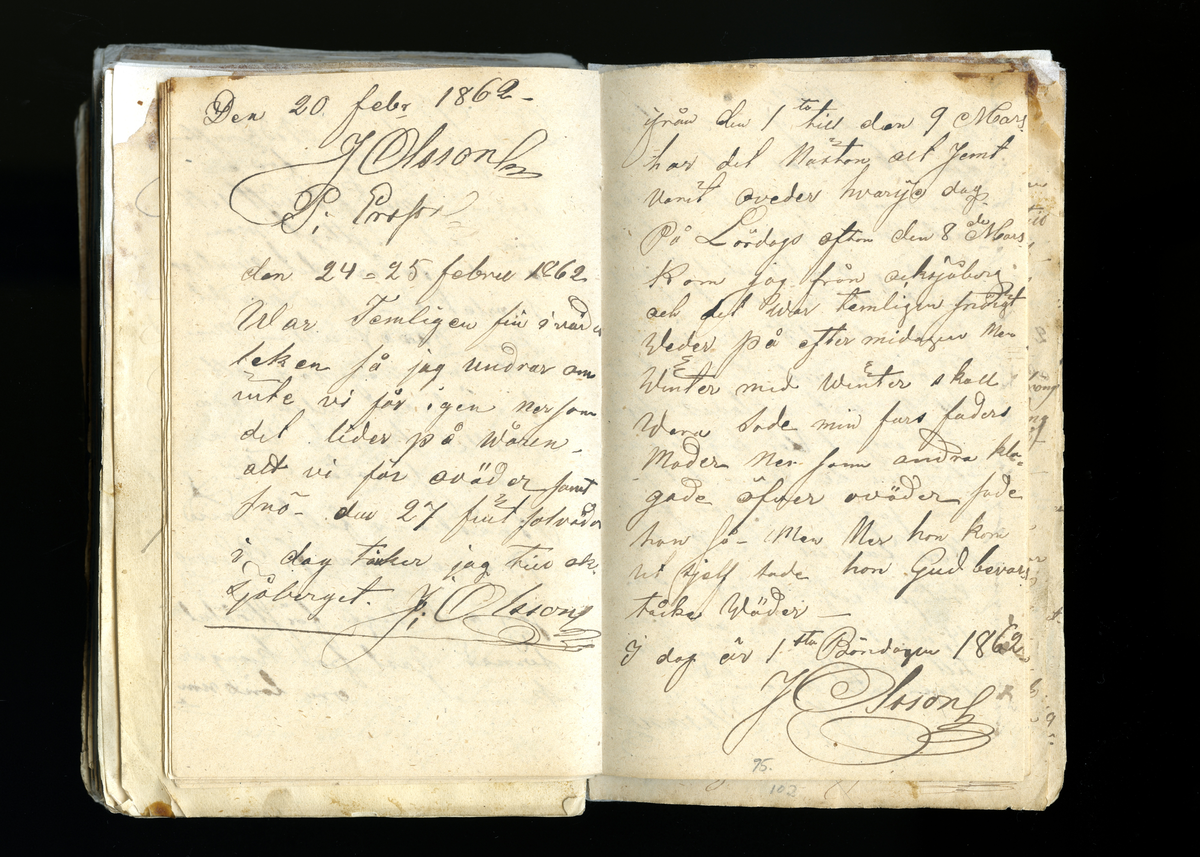 Den 20 febr 1862-
J Olsson
P. Ersson
den 24=25 februi 1862
War Temligen fin i väd
leken så jag undrar om
inte vi får igen ner som
det lider på Wåren
att vi får oväder samt
snö- den 27 fint solväder
i dag tåker jag till ek
sjöberget. J, Olsson
från den 1ta till den 9 Mars
har det Näston alt Jemt
varit oveder hvarje dag
På Lördags afton den 8de Mars
Kom jag från ecksjöberg
och det War temligen friskt
Weder på efter midagen Men
Winter med Winter skall
Wara sade min fars faders
Moder Ner som andra kla-
gade öfwer oväder sade
hon så- Men Ner hon kom
ut sjelf sade hon Gud bevars
tåke Wäder-
I dag är 1sta Böndagen 1862
J Olsson
95.
102